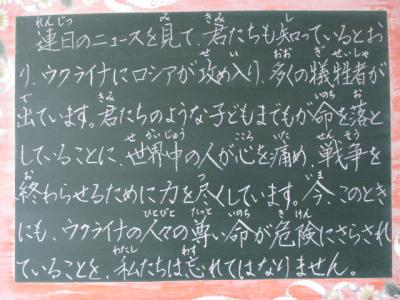 連日のニュースを見て、君たちも知っているとお
り、ウクライナにロシアが攻め入り、多くの犠牲者が
出ています。君たちのような子どもまでもが命を落と
していることに、世界中の人が心を痛め、戦争を
終わらせるために力を尽くしています。今、このとき
にも、ウクライナの人々の尊い命が危険にさらされ
ていることを、私たちは忘れてはなりません。